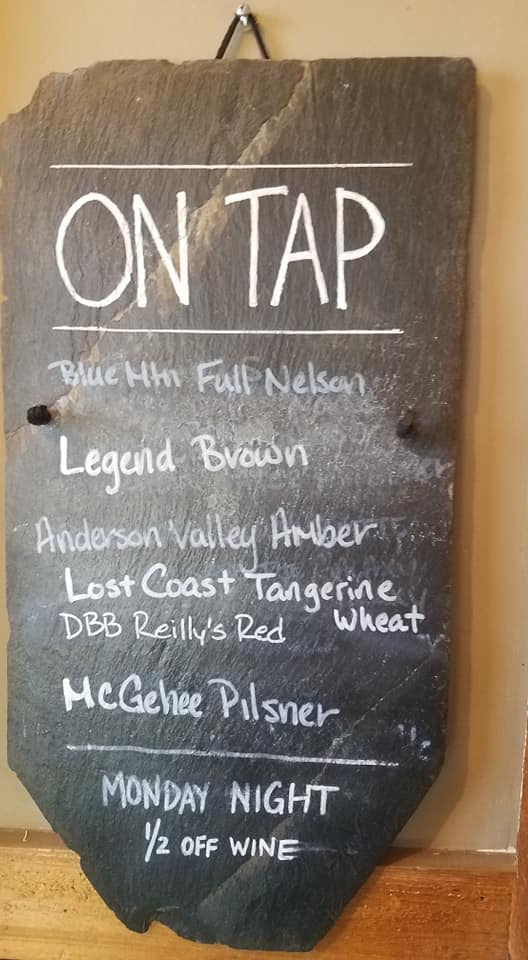 ON TAP
Blue Mtn Full Nelson
Legend Brown
Anderson Valley Amber
Lost Coast Tangerine
Wheat
DBB Reilly's Red
McGehee Pilsner
MONDAY NIGHT
1/2 OFF WINE